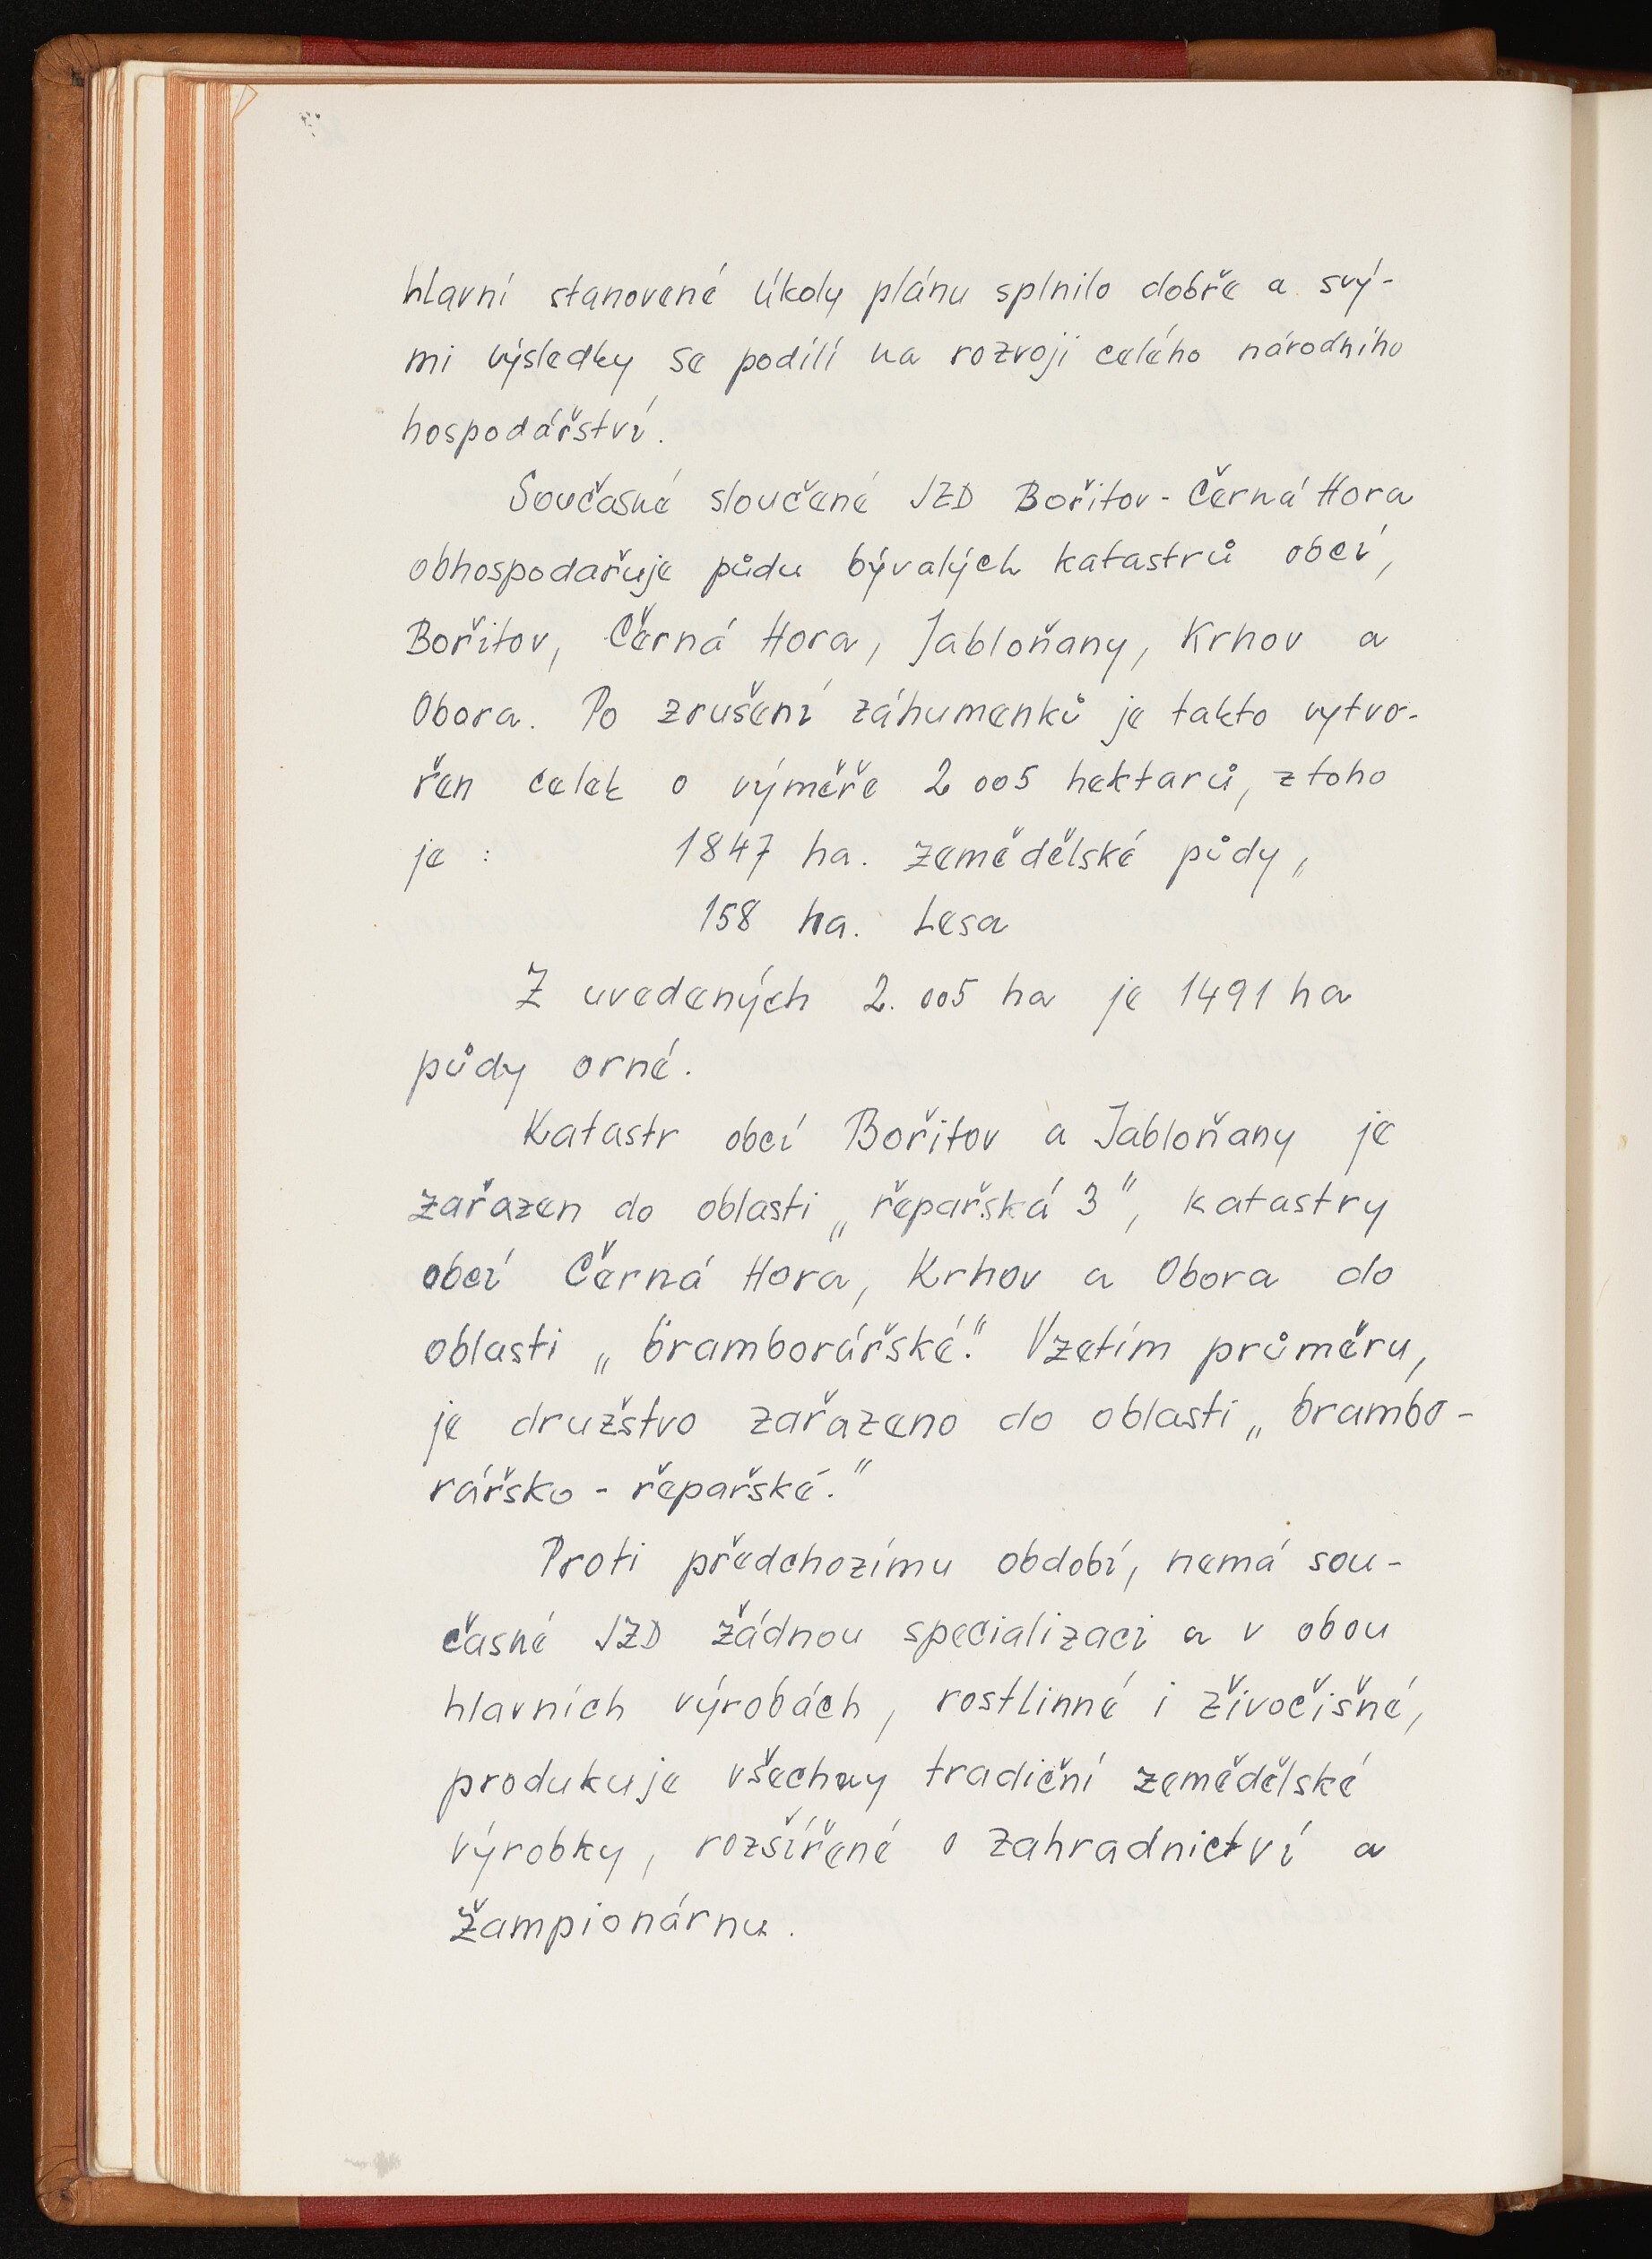 hlavní stanovené úkoly plánu splnilo dobře a svý-
mi výsledky se podílí na rozvoji celého národního
hospodářství.
Současné sloučené JZD Bořitov - Černá Hora
obhospodařuje půdu bývalých katastrů obcí,
Bořitov, Černá Hora, Jabloňany, Krhov a
Obora. Po zrušení záhumenků je takto vytvo-
řen celek o výměře 2 005 hektarů, z toho
je : 1847 ha. zemědělské půdy „
158 ha. Lesa
Z uvedených 2. 005 ha je 1491 ha
půdy orné.
Katastr obcí Bořitov a Jabloňany je
zařazen do oblasti „ řepařská 3 “, katastry
obcí Černá Hora, Krhov a Obora do
oblasti „ bramborářské.“ Vzetím průměru,
je družstvo zařazeno do oblasti „ brambo-
rářsko - řepařské.“
Proti předchozímu období, nemá sou-
časné JZD žádnou specializaci a v obou
hlavních výrobách, rostlinné i živočišné,
produkuje všechny tradiční zemědělské
výrobky, rozšířené o zahradnictví a
žampionárnu.